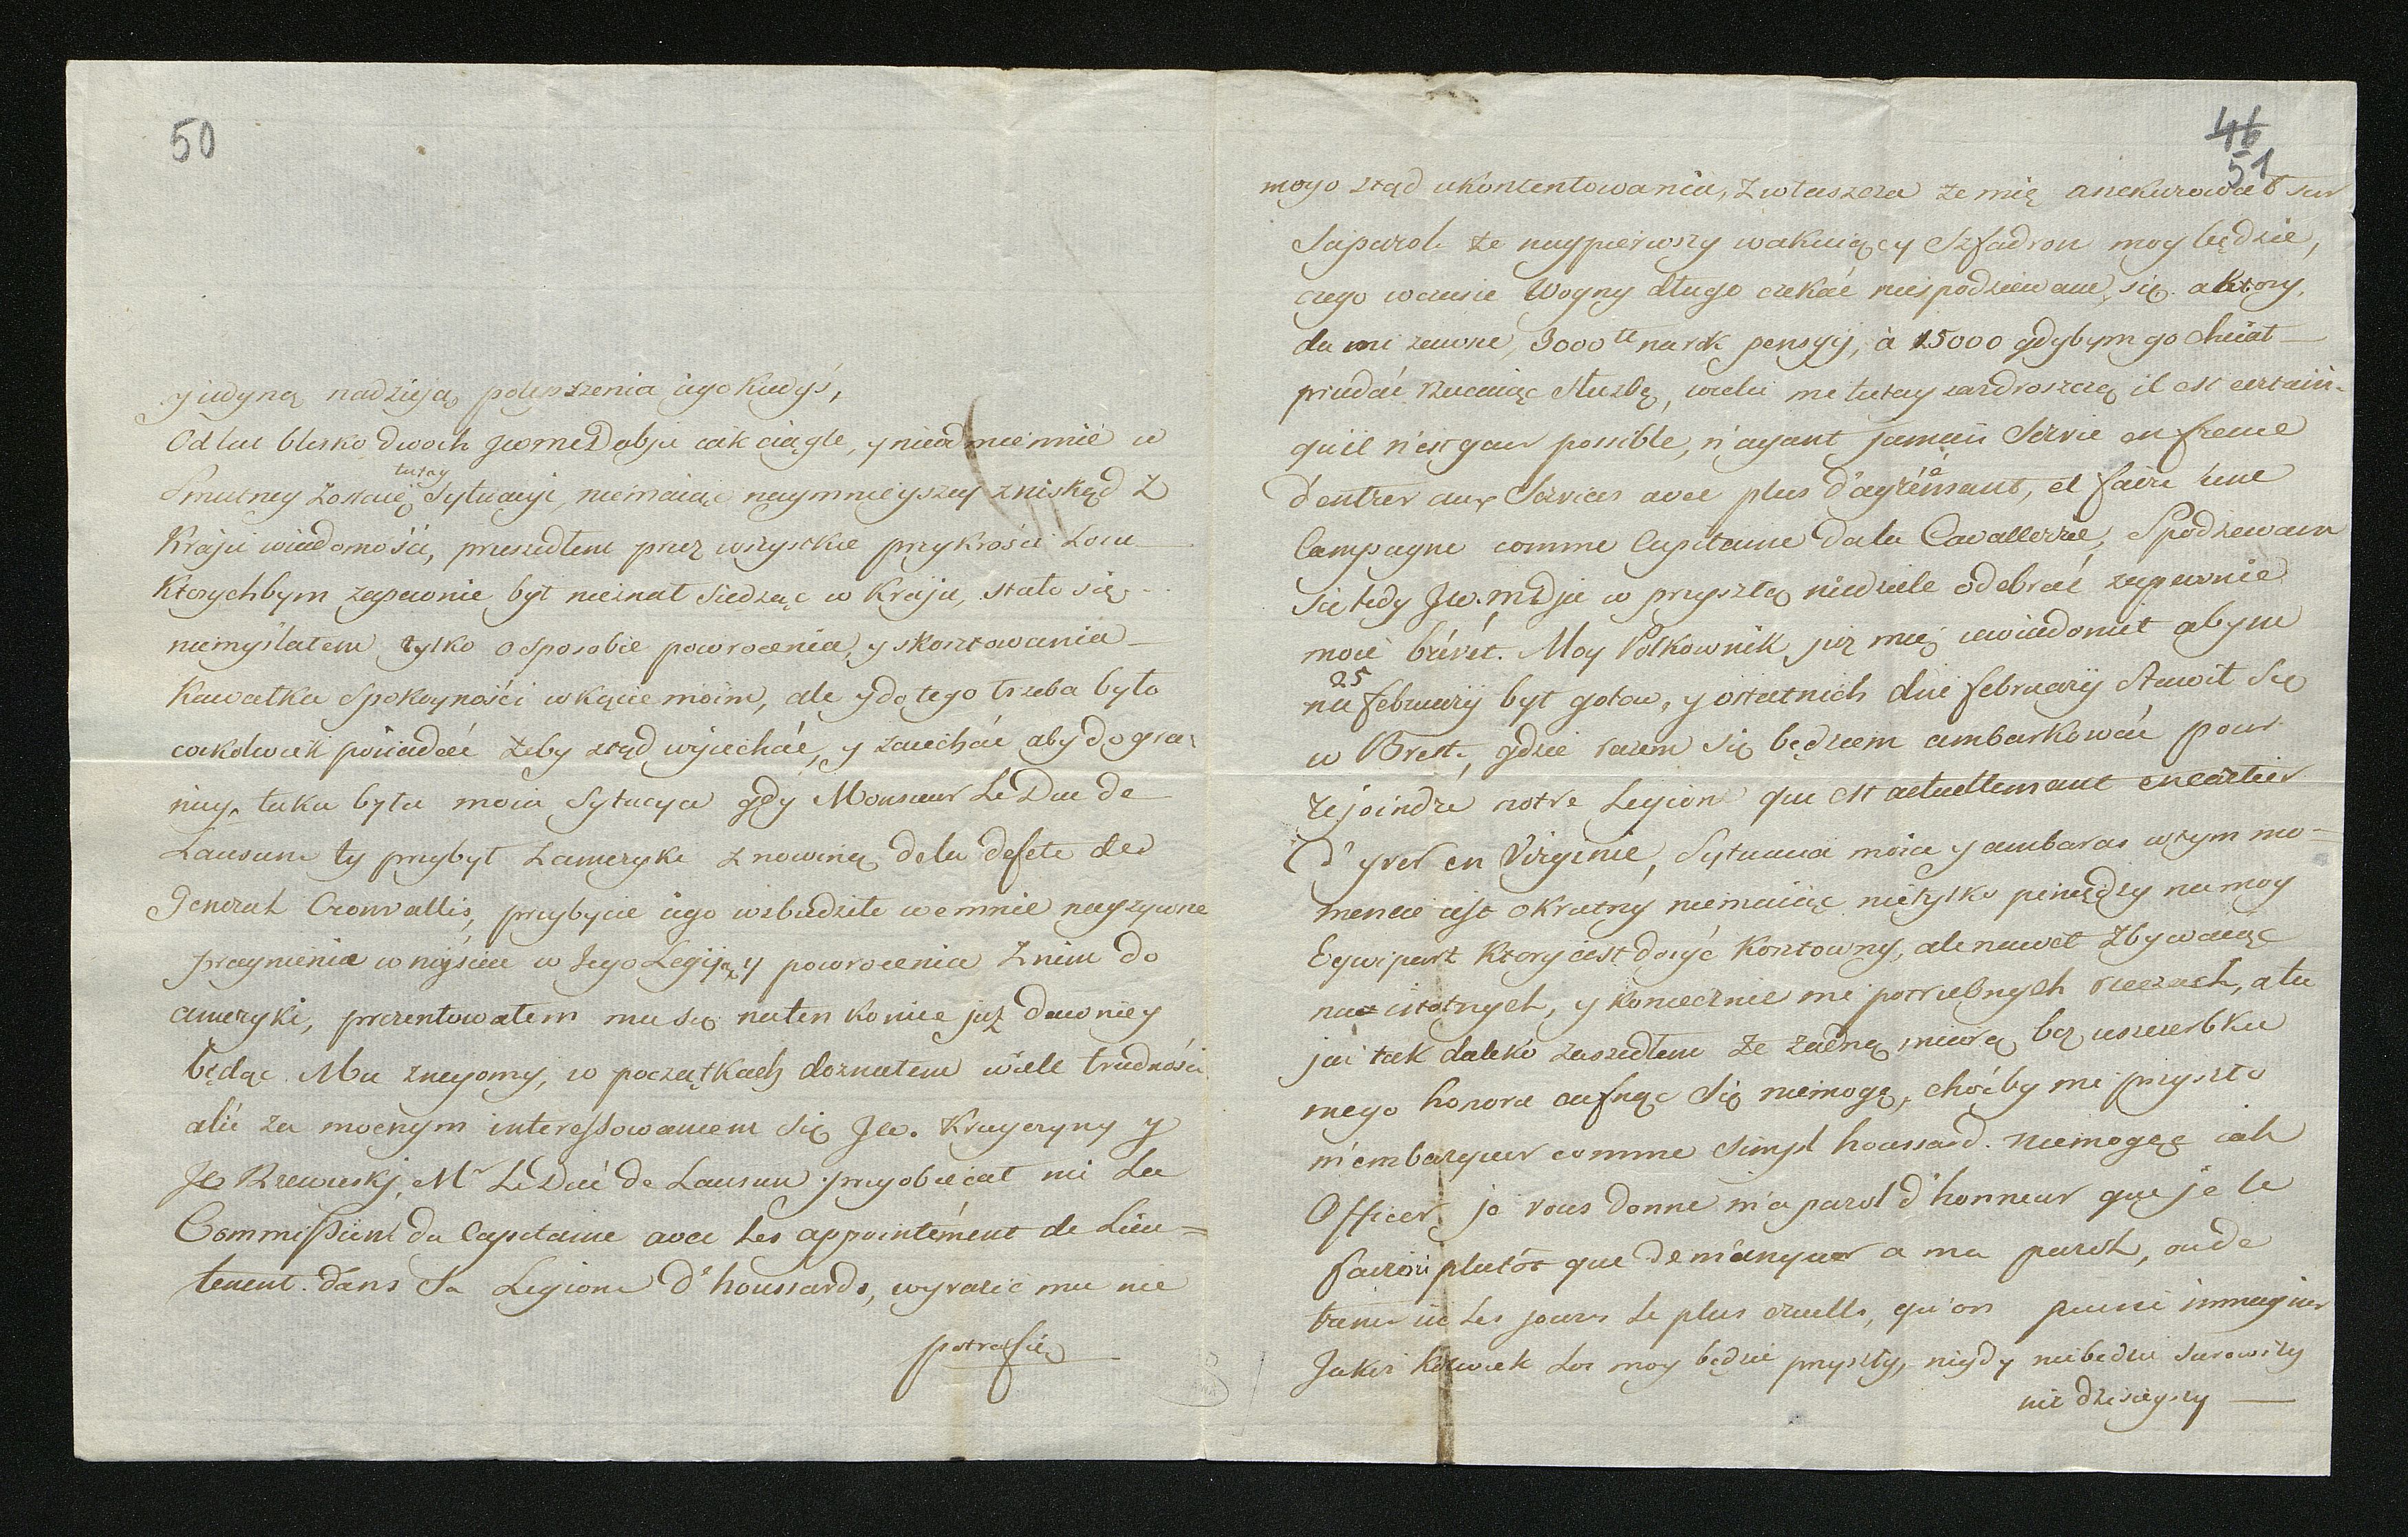 50
y iedyną nadzieją polepszenia iego kiedyś,
Od lat blisko dwoch JWmć Dobju iak ciągle, y nieodmiennie w
Smutney zostaię tutay Sytuacyi, niemaiąc naymnieyszey zniskąd z
Kraju wiadomości, przeszedłem przez wszystkie przykrości Losu
Ktorychbym zapewnie był nieznał Siedząc w Kraju, stało się
niemyślałem tylko o sposobie powrocenia, y skosztowania
Kawałka Spokoyności w kącie moim, ale y do tego trzeba było
cokolwiek posiadać żeby ztąd wyiechać, y zaiechać aby do gra-
nicy. taka była moia Sytuacya gdy Monsieur Le Duc de
Lausun ty przybył z ameryki z nowiną de la defete de
General Cronvallis, przybycie iego wzbudziło we mnie nayżywsze
pragnienie wniyścia w Jego Legiją y powrocenia z nim do
ameryki, prezentowałem mu się na ten koniec już dawniey
będąc Mu znayomy, w początkach doznałem wiele trudności
alić za mocnym interessowaniem się JW. Krayczyny y
JP Rzewuskj, Mr Le Duc de Lausun przyobiecał mi La
Commission du Capitaine avec Les appointément de Lieu=
tenent. dans Sa Legione d'houssards, wyrazić mu nie
potrafię
46
51
mogo ztąd ukontentowania, zwłaszcza że mię assekurował sur
Saparol że naypierwszy wakuiący Szfadron moy będzie,
czego w czasie Woyny długo czekać niespodziewam się. a ktory
da mi zawsze, 3000 tt na rok pensyij, à 15000 gdybym go chciał
przedać rzucaiąc Służbę, wielu me tutay zazdroszczą il est certain
qu'il n'est gaur possible, n'ayant jamais Servie en frence
d'entrer aux Services avec plus d'agrément, et faire une
Campagne comme Capitaine dala Cavallerie, Spodziewam
się tedy JW. mDju w przyszłą niedziele odebrać zapewnie
moie brévét. Moy Półkownik już mię uwiadomił abym
na 25 februarij był gotow, y ostatnich dni februarij Stawił się
w Brest, gdzie razem się będziem ambarkować pour
rejoindre notre Legion que est actuellemant encartier
d'yver en Virginie, Sytuacia moia y ambaras w tym mo=
mencie iest okrutny niemaiąc nietylko pieniędzy na moy
Equipaż Ktory iest dosyć Kosztowny, ale nawet Zbywaiąc
na istotnych, y koniecznie mi potrzebnych rzeczach, a tu
jui tak daleko zaszedłem że żadną miarą bez uszczerbku
mego honoru cofnąć się niemogę, choćby mi przyszło
m'embarquer comme Simpl houssard. niemogąc iak
Officer, je vous donne m'a parol d'honneur que je le
fairoi plutôt que de m'anquer a ma parol, ou de
trener ici Les jours Le plus cruells, qu'on puisse immaginer
Jakiż kolwiek Los moy będzie przyszły, nigdy niebędzie surowszy
niż dzisieyszy